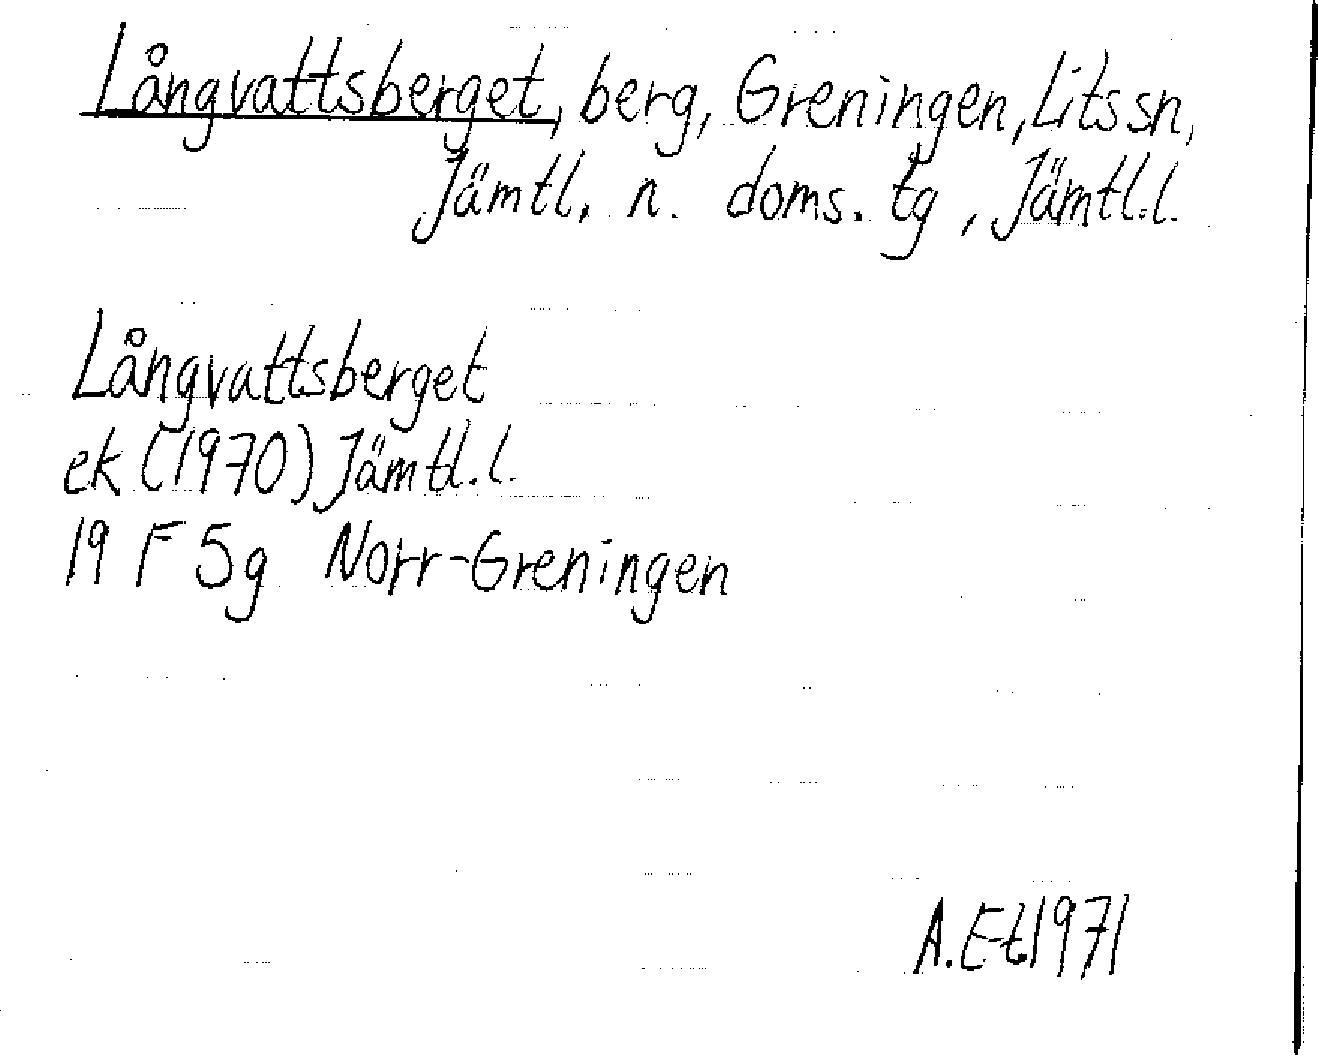 Långvattsberget, berg, Greningen, Lits sn,
Jämtl. n. doms. tg, Jämtl.l.
Långvattsberget
ek (1970) Jämtl.l.
19 F 5g Norr-Greningen
A.E-t 1971